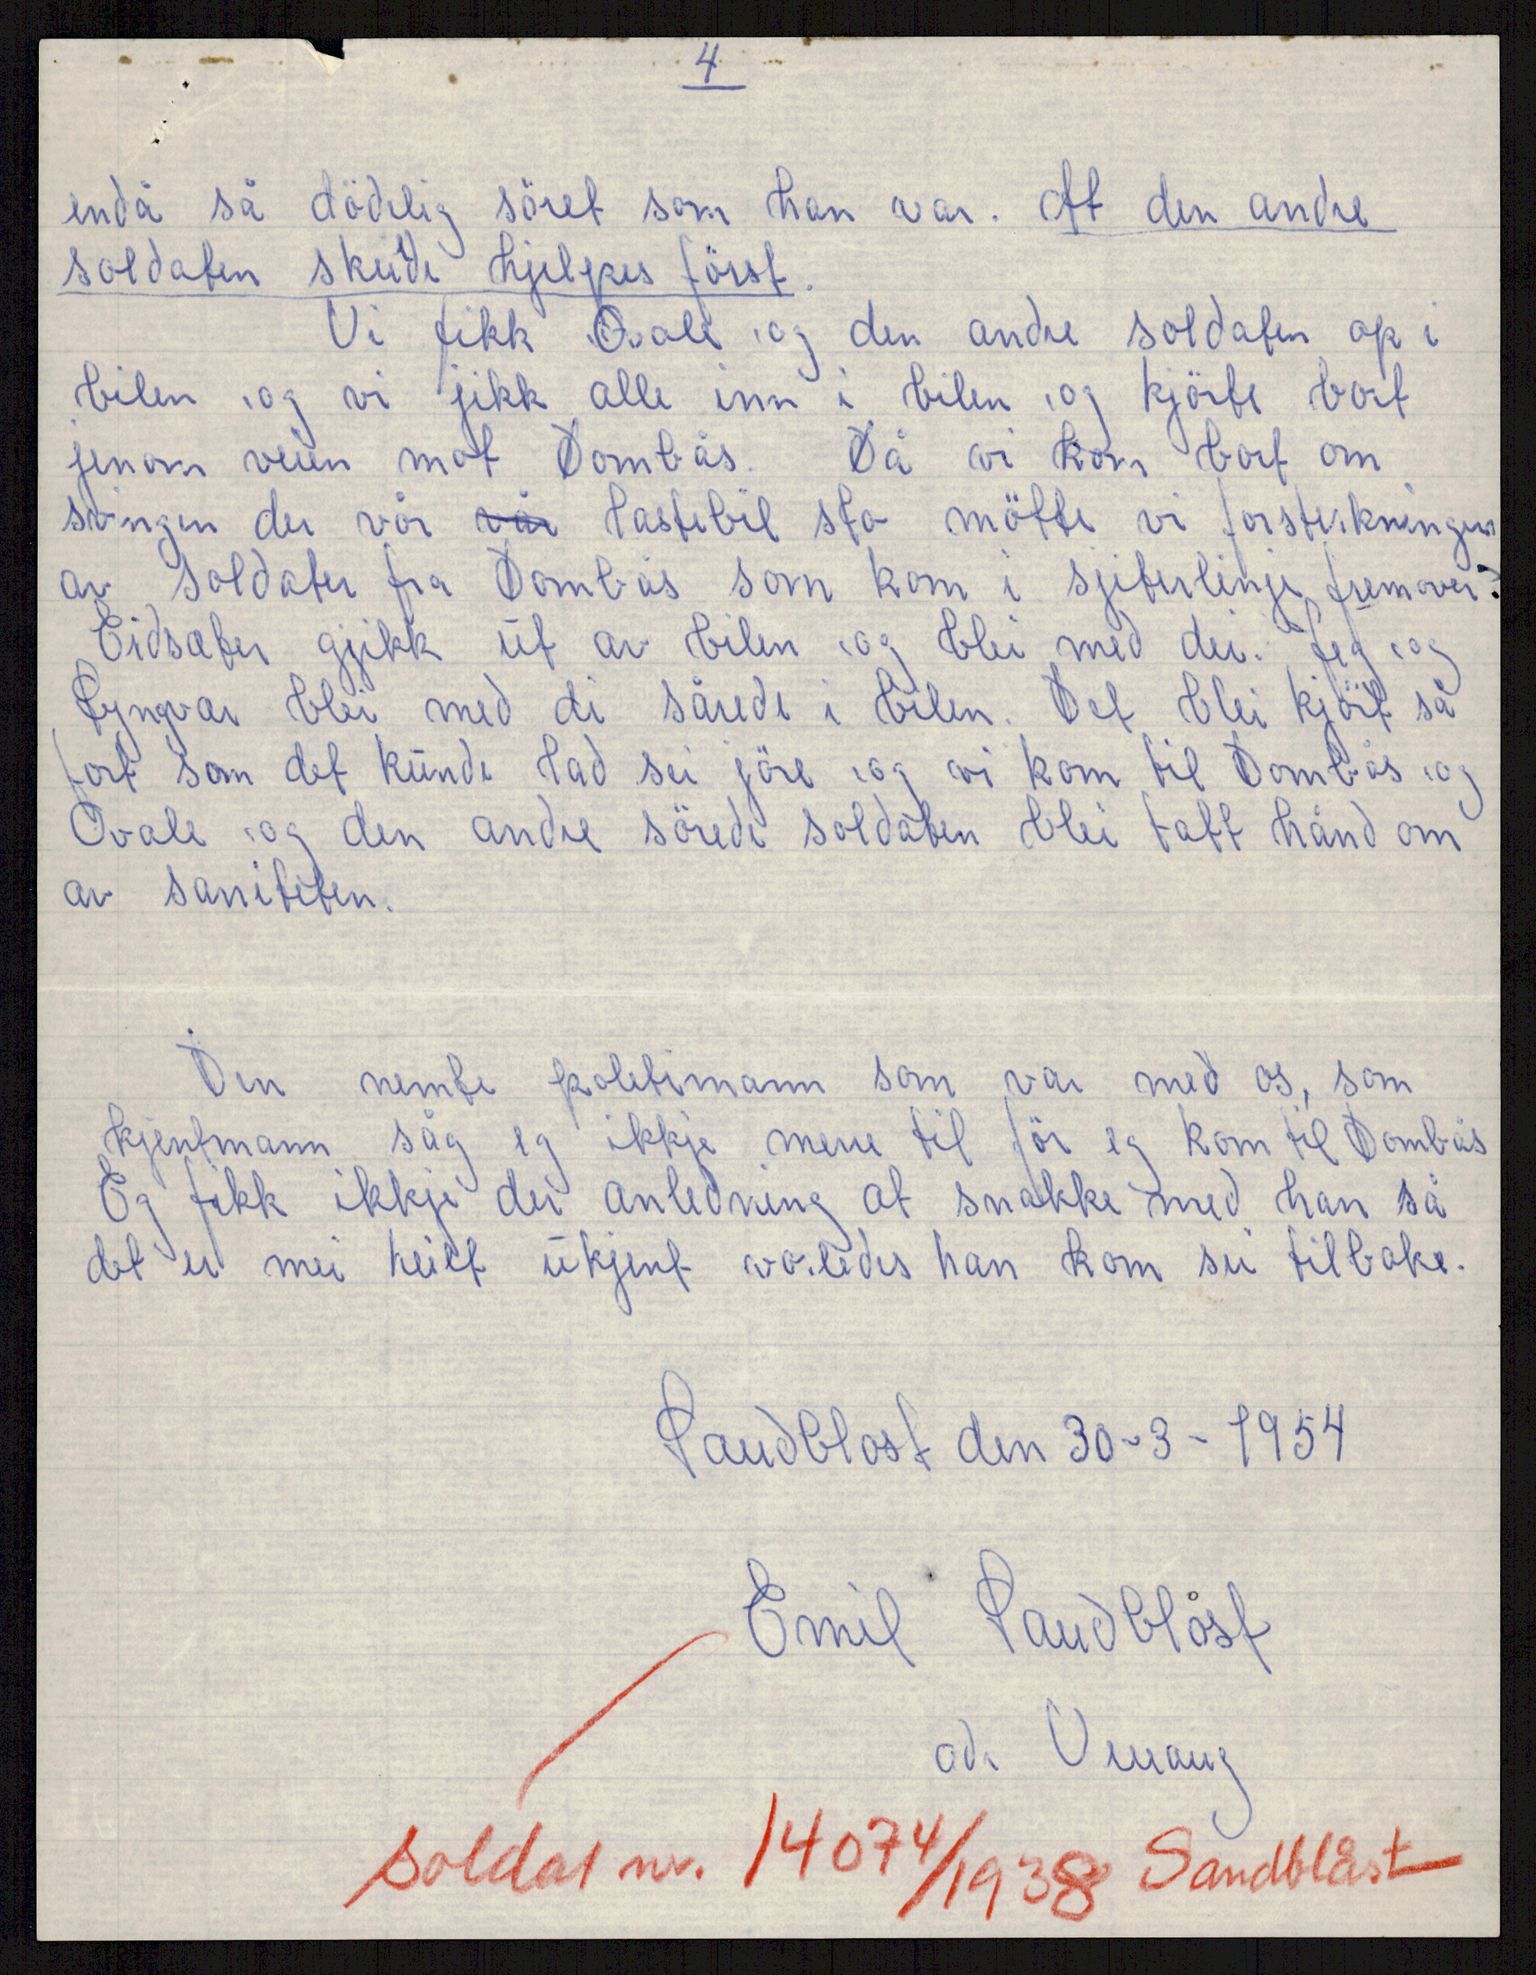 4
endå så dödelig såret som han var. At den andre
soldaten skulde hjelpes först.
Vi fikk Ovale og den andre soldaten op i
bilen og vi jikk alle inn i bilen og kjörte bort
jenom veien mot Dombås. Då vi kom bort om
svingen der vår vår lastebil sto mötte vi forsterkninger
av soldater fra Dombås som kom i sjiterlinje fremover.
Eidsæter gjikk ut av bilen og blei med dei. Jeg og
Syngvar blei med di sårede i bilen. Det blei kjört så
fort som det kunde lad sei jöre og vi kom til Dombås og
Ovale og den andre sårede soldaten blei tatt hånd om
av saniteten.
Den nemte poletimann som var med os, som
kjentmann såg eg ikkje mere til för eg kom til Dombås
Eg fikk ikkje der anledning at snakke med han så
det er mei heilt ukjent voledes han kom sei tilbake.
Sandblost den 30-3-1954
Emil Sandblåst
ad. Verrang
soldat nr. 14074/1938 Sandblåst